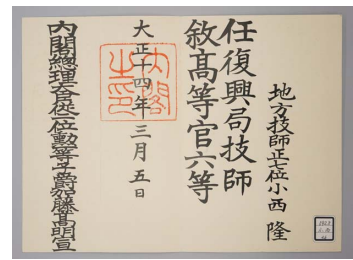 地方技師正七位小西隆
任復興局技師
敘高等官六等
大正十四年三月五日
内閣之印
内閣總理大臣從二位勳一等子爵加藤高明宣